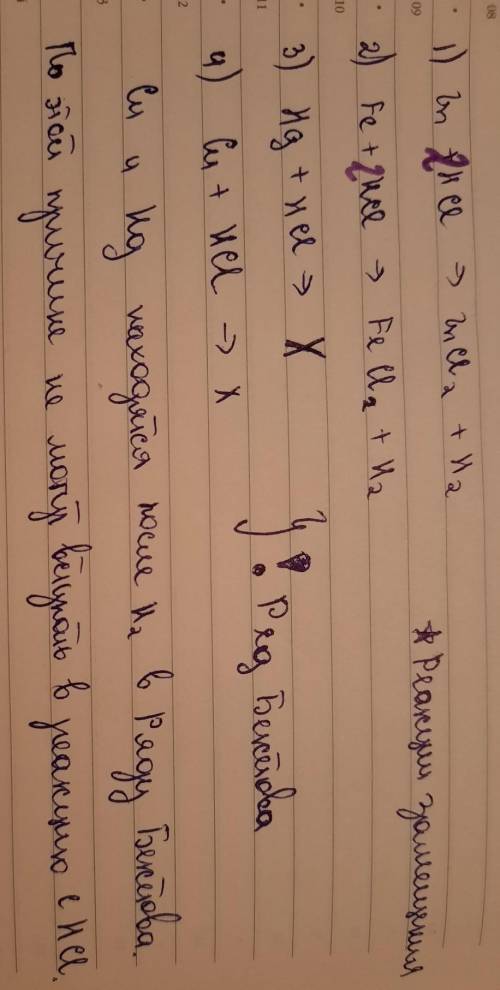 08
09
10
11
2
3
1) Zn + 2HCl → ZnCl₂ + H₂
* Реакции замещения
2) Fe + 2HCl → FeCl₂ + H₂
3) Hg + HCl → X
! Ряд Бекетова
4) Cu + HCl → X
Cu и Hg находятся после H₂ в Ряду Бекетова.
По этой причине не могут вступать в реакцию с HCl.